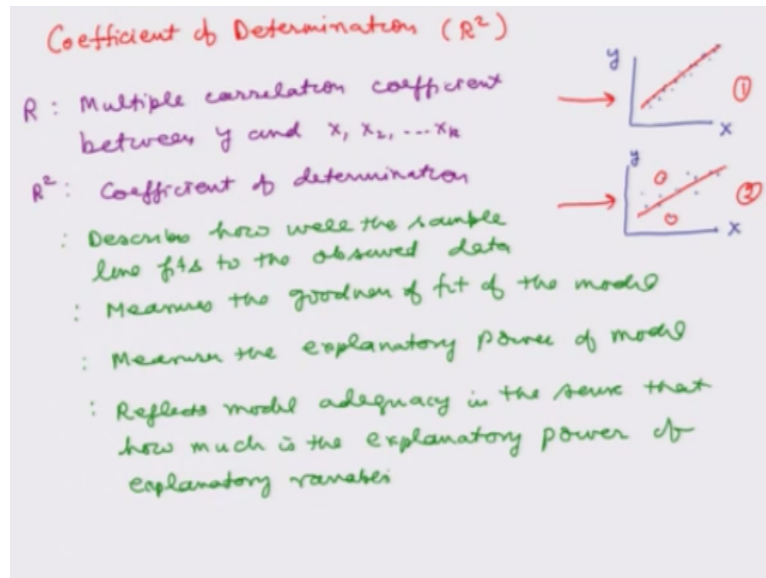 Coefficient of Determination (R²)
R : Multiple correlation coefficient
between y and x, x₂, ... xₖ
R² : Coefficient of determination
: Describes how well the sample
line fits to the observed data
: Measures the goodness of fit of the model
: Measures the explanatory power of model
: Reflects model adequacy in the sense that
how much is the explanatory power of
explanatory variables
y
x
①
y
x
②